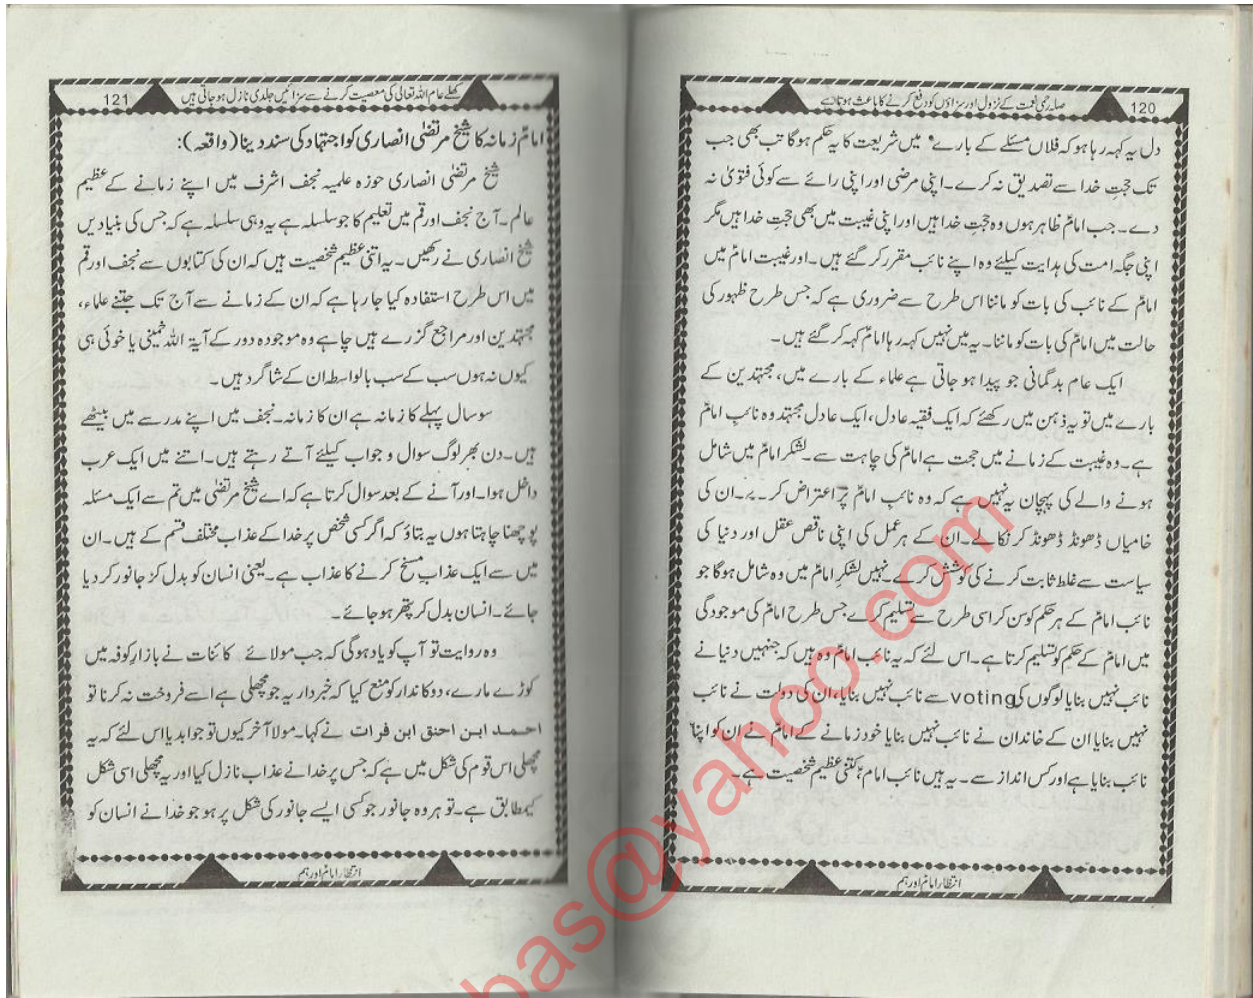 صلہ رحمی نعمت کے نزول اور سزاؤں کو دفع کرنے کا باعث ہوتا ہے
120
دل یہ کہہ رہا ہو کہ فلاں مسئلے کے بارے میں شریعت کا یہ حکم ہوگا تب بھی جب
تک حجتِ خدا سے تصدیق نہ کرے۔ اپنی مرضی اور اپنی رائے سے کوئی فتویٰ نہ
دے۔ جب امامؑ ظاہر ہوں وہ حجتِ خدا ہیں اور اپنی غیبت میں بھی حجتِ خدا ہیں مگر
اپنی جگہ امت کی ہدایت کیلئے وہ اپنے نائب مقرر کر گئے ہیں۔ اور غیبت امامؑ میں
امامؑ کے نائب کی بات کو ماننا اس طرح سے ضروری ہے کہ جس طرح ظہور کی
حالت میں امامؑ کی بات کو ماننا۔ یہ میں نہیں کہہ رہا امامؑ کہہ کر گئے ہیں۔
ایک عام بدگمانی جو پیدا ہو جاتی ہے علماء کے بارے میں، مجتہدین کے
بارے میں تو یہ ذہن میں رکھئے کہ ایک فقیہ عادل، ایک عادل مجتہد وہ نائبِ امامؑ
ہے۔ وہ غیبت کے زمانے میں حجت ہے امامؑ کی چاہت سے۔ لشکرِ امامؑ میں شامل
ہونے والے کی پہچان یہ نہیں ہے کہ وہ نائبِ امامؑ پر اعتراض کرے۔ ان کی
خامیاں ڈھونڈ ڈھونڈ کر نکالے۔ ان کے ہر عمل کی اپنی ناقص عقل اور دنیا کی
سیاست سے غلط ثابت کرنے کی کوشش کرے۔ نہیں لشکرِ امامؑ میں وہ شامل ہوگا جو
نائب امامؑ کے ہر حکم کو سن کر اسی طرح سے تسلیم کرے جس طرح امامؑ کی موجودگی
میں امامؑ کے حکم کو تسلیم کرتا ہے۔ اس لئے کہ یہ نائب امامؑ وہ ہیں کہ جنہیں دنیا نے
نائب نہیں بنایا لوگوں کی voting سے نائب نہیں بنایا، ان کی دولت نے نائب
نہیں بنایا ان کے خاندان نے نائب نہیں بنایا خود زمانے کے امامؑ نے ان کو اپنا
نائب بنایا ہے اور کس انداز سے۔ یہ ہیں نائب امامؑ، کتنی عظیم شخصیت ہے۔
انتظار امامؑ اور ہم
کھلے عام اللہ تعالیٰ کی معصیت کرنے سے سزائیں جلدی نازل ہو جاتی ہیں
121
امامؑ زمانہ کا شیخ مرتضیٰ انصاری کو اجتہاد کی سند دینا (واقعہ):
شیخ مرتضیٰ انصاری حوزہ علمیہ نجف اشرف میں اپنے زمانے کے عظیم
عالم۔ آج نجف اور قم میں تعلیم کا جو سلسلہ ہے یہ وہی سلسلہ ہے کہ جس کی بنیادیں
شیخ انصاری نے رکھیں۔ یہ اتنی عظیم شخصیت ہیں کہ ان کی کتابوں سے نجف اور قم
میں اس طرح استفادہ کیا جا رہا ہے کہ ان کے زمانے سے آج تک جتنے علماء،
مجتہدین اور مراجع گزرے ہیں چاہے وہ موجودہ دور کے آیۃ اللہ خمینی یا خوئی ہی
کیوں نہ ہوں سب کے سب بالواسطہ ان کے شاگرد ہیں۔
سو سال پہلے کا زمانہ ہے ان کا زمانہ۔ نجف میں اپنے مدرسے میں بیٹھے
ہیں۔ دن بھر لوگ سوال و جواب کیلئے آتے رہتے ہیں۔ اتنے میں ایک عرب
داخل ہوا۔ اور آنے کے بعد سوال کرتا ہے کہ اے شیخ مرتضیٰ میں تم سے ایک مسئلہ
پوچھنا چاہتا ہوں یہ بتاؤ کہ اگر کسی شخص پر خدا کے عذاب مختلف قسم کے ہیں۔ ان
میں سے ایک عذاب مسخ کرنے کا عذاب ہے۔ یعنی انسان کو بدل کر جانور کر دیا
جائے۔ انسان بدل کر پتھر ہو جائے۔
وہ روایت تو آپ کو یاد ہوگی کہ جب مولائے کائنات نے بازارِ کوفہ میں
کوڑے مارے، دوکاندار کو منع کیا کہ خبردار یہ جو مچھلی ہے اسے فروخت نہ کرنا تو
احمد ابن احنق ابن فرات نے کہا۔ مولا آخر کیوں تو جواب دیا اس لئے کہ یہ
مچھلی اس قوم کی شکل میں ہے کہ جس پر خدا نے عذاب نازل کیا اور یہ مچھلی اسی شکل
کیمطابق ہے۔ تو ہر وہ جانور جو کسی ایسے جانور کی شکل پر ہو جو خدا نے انسان کو
انتظار امامؑ اور ہم
bas@yahoo.com